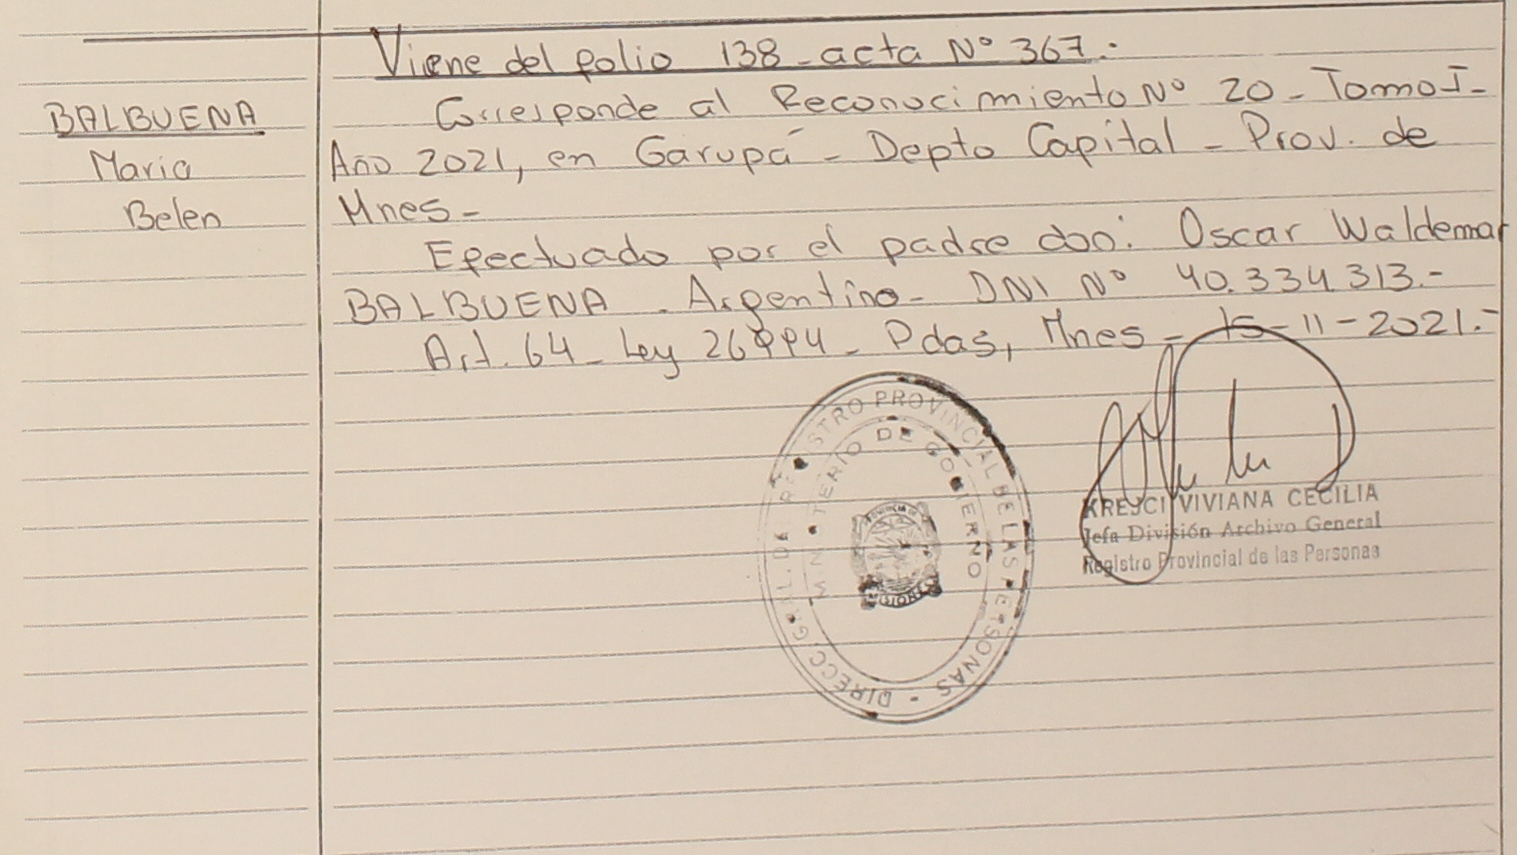 Viene del folio 138 - acta Nº 367.-
BALBUENA
Maria
Belen
Corresponde al Reconocimiento Nº 20 - Tomo I -
Año 2021, en Garupá - Depto Capital - Prov. de
Mnes -
Efectuado por el padre don: Oscar Waldemar
BALBUENA - Argentino - DNI Nº 40.334.313.-
Art. 64 - Ley 26994 - Pdas, Mnes - 15-11-2021.-
DIRECC. GRAL. DEL REGISTRO PROVINCIAL DE LAS PERSONAS -
MINISTERIO DE GOBIERNO
PROVINCIA DE
MISIONES
KREJCI VIVIANA CECILIA
Jefa División Archivo General
Registro Provincial de las Personas